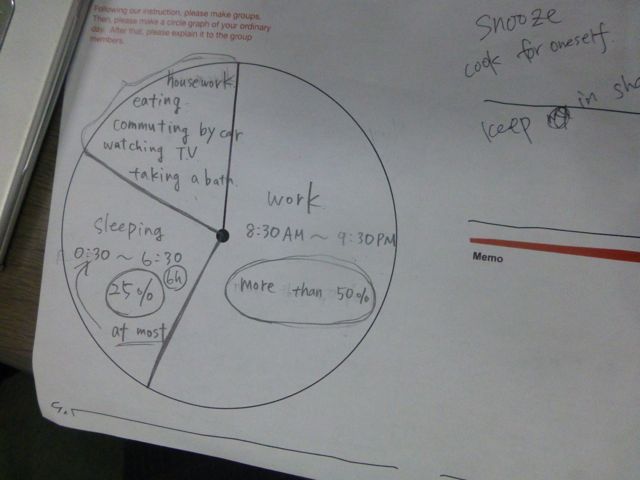 Following our instruction, please make groups.
Then, please make a circle graph of your ordinary
day. After that, please explain it to the group
members.
housework
eating
commuting by car
watching TV
taking a bath
work
8:30AM ~ 9:30PM
more than 50%
sleeping
0:30 ~ 6:30
6h
25%
at most
snooze
cook for oneself.
keep in sha
Memo